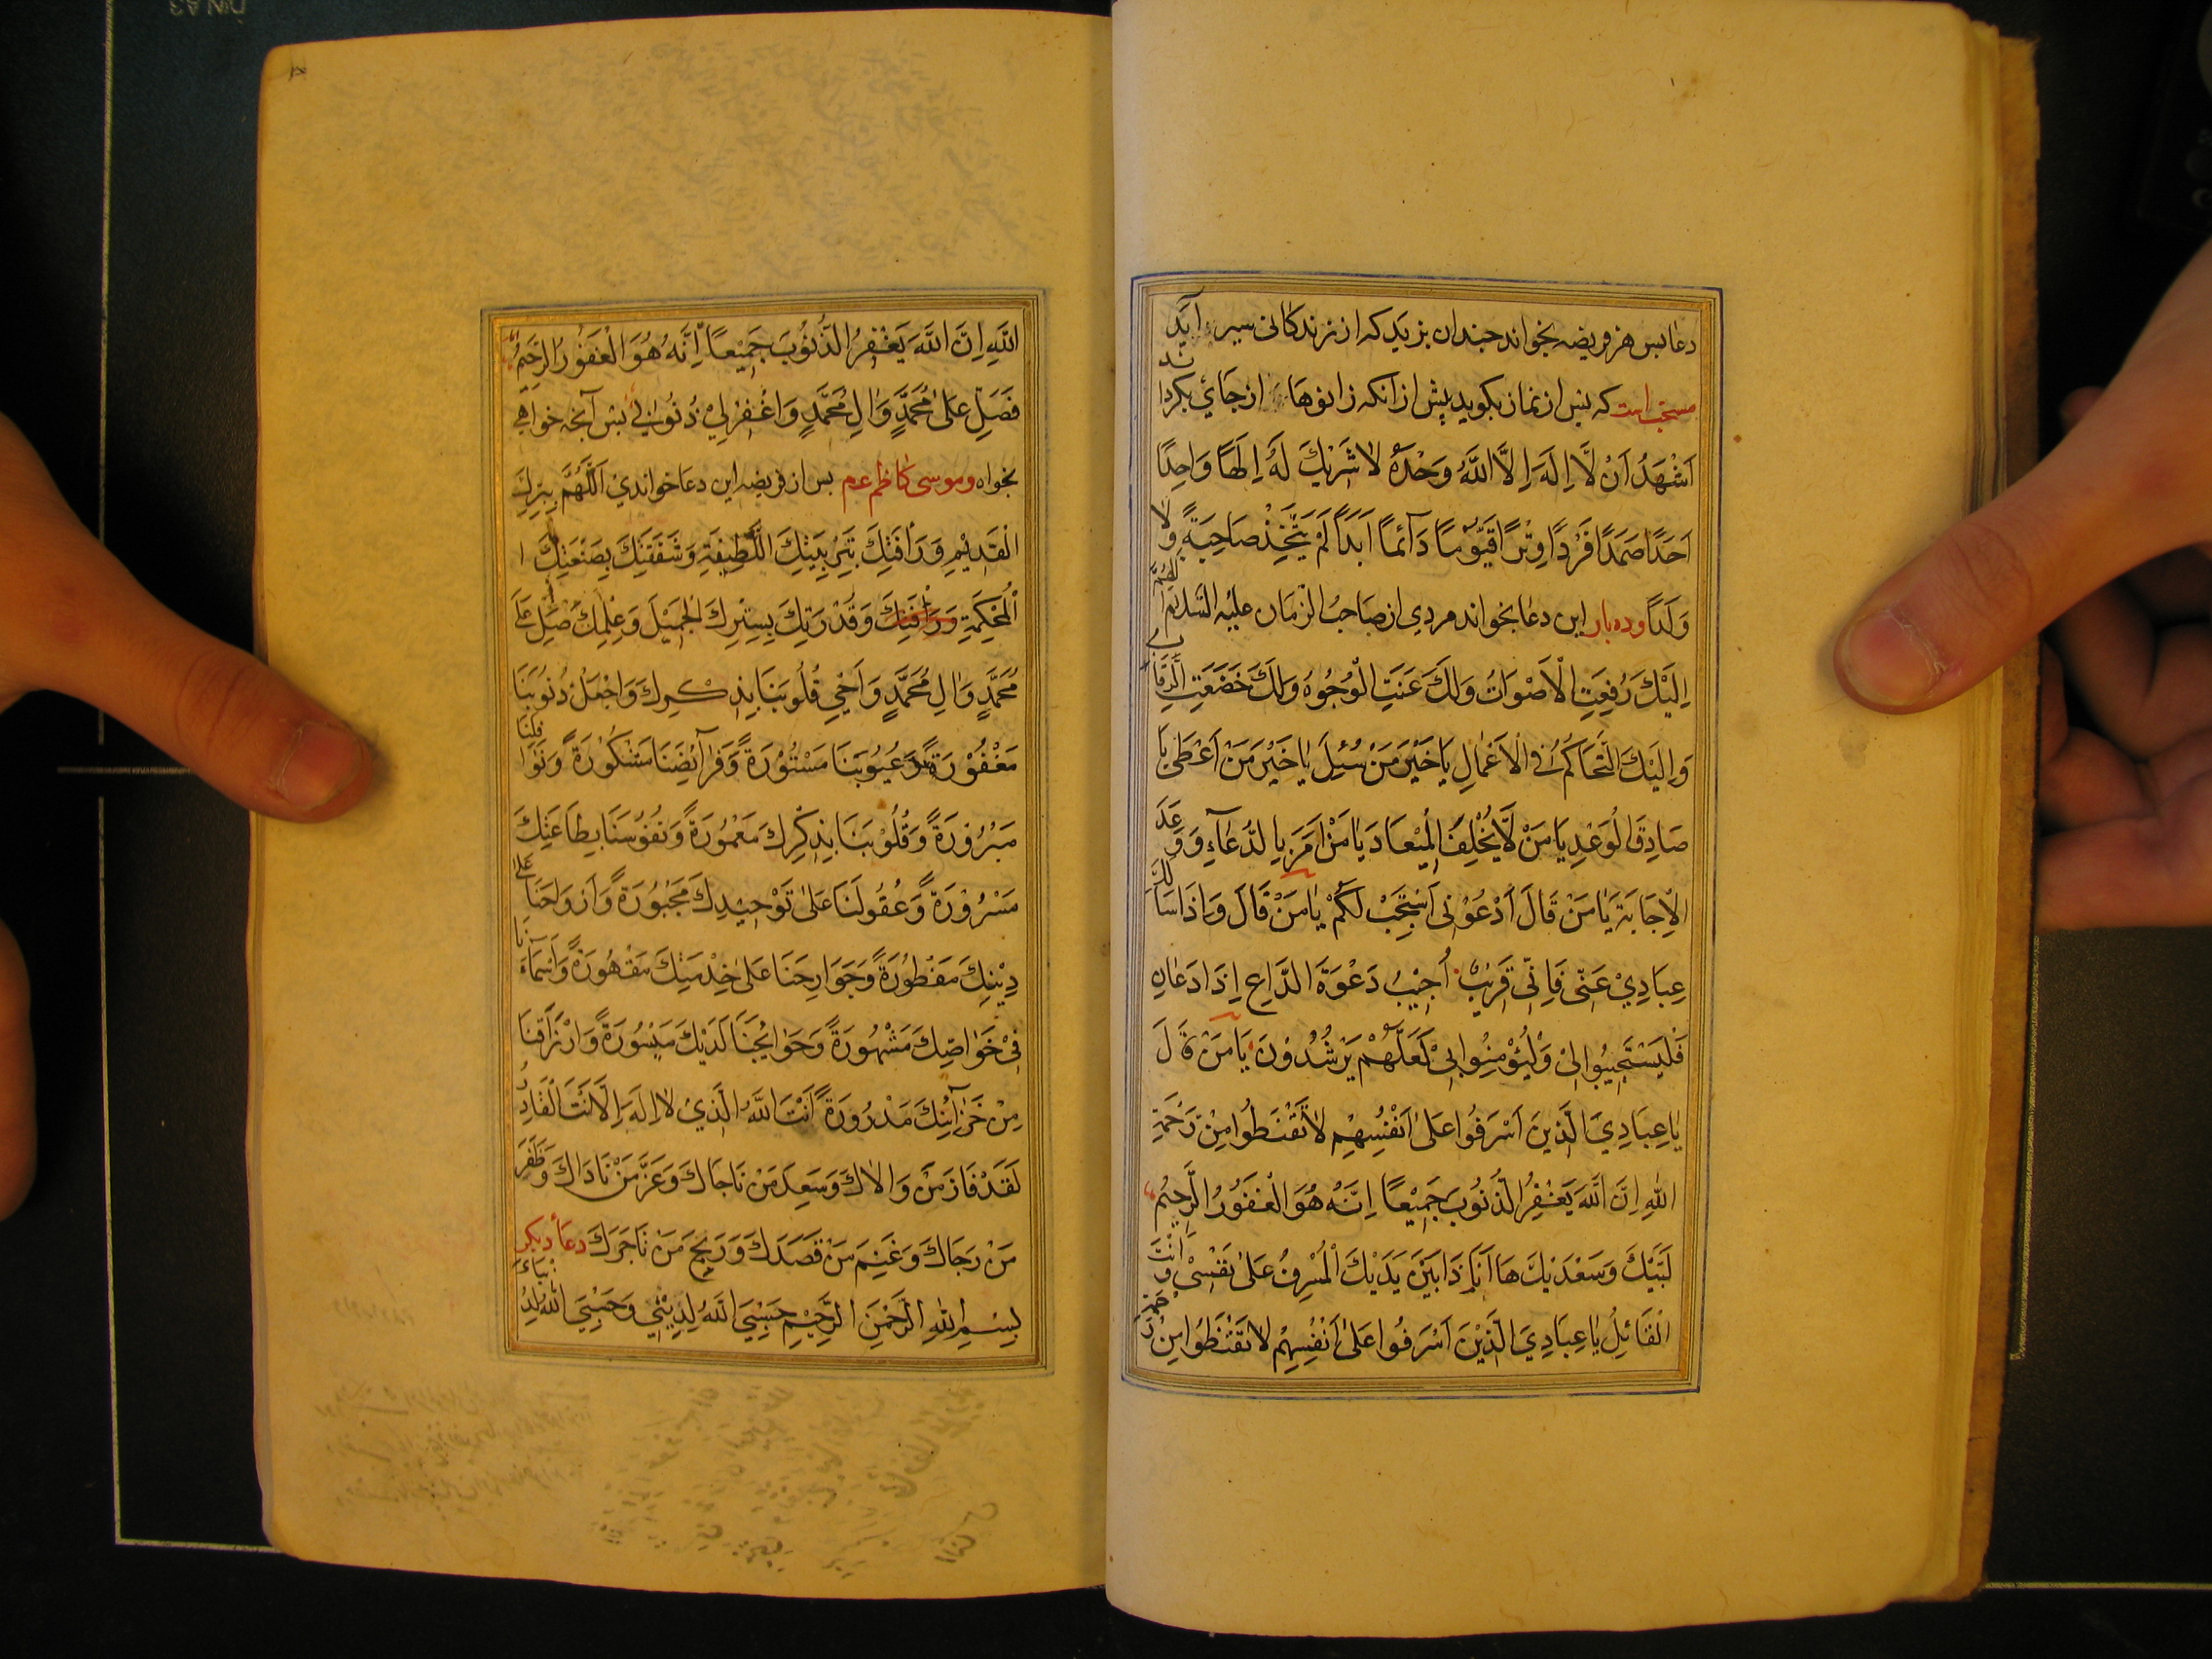 دعا بس هر فریضه بخواند چندان بزید که از زندکانی سیر آید
مستحب است که بس از نماز بکوید پیش از آنکه زانوها از جای بکرداند
اَشْهَدُ اَنْ لَا اِلَهَ اِلَّا اللَّهُ وَحْدَهُ لَا شَرِيْكَ لَهُ اِلَهًا وَاحِدًا
اَحَدًا صَمَدًا فَرْدًا وِتْرًا قَيُّوْمًا دَآئمًا اَبَدًا لَمْ يَتَّخِذْ صَاحِبَةً وَلَا
وَلَدًا وده بار این دعا بخواند مردی از صَاحِبُ الزمان علیه السّلام اَللَّهُمَّ
اِلَيْكَ رُفِعَتِ الْاَصْوَاتُ وَلَكَ عَنَتِ الْوُجُوهُ وَلَكَ خَضَعَتِ الرِّقَابُ
وَاِلَيْكَ التَّحَاكُمُ فِي الْاَعْمَالِ يَا خَيْرَ مَنْ سُئِلَ يَا خَيْرَ مَنْ اَعْطَى يَا
صَادِقَ الْوَعْدِ يَا مَنْ لَا يُخْلِفُ الْمِيْعَادَ يَا مَنْ اَمَرَ بِالدُّعَآءِ وَوَعَدَ
الْاِجَابَةَ يَا مَنْ قَالَ اَدْعُوْنِي اَسْتَجِبْ لَكُمْ يَا مَنْ قَالَ وَاِذَا سَاَلَكَ
عِبَادِيْ عَنِّي فَاِنِّي قَرِيْبٌ اُجِيْبُ دَعْوَةَ الدَّاعِ اِذَا دَعَانِ
فَلْيَسْتَجِيبُوا لِيْ وَلْيُؤْمِنُوا بِيْ لَعَلَّهُمْ يَرْشُدُوْنَ يَا مَنْ قَالَ
يَا عِبَادِيَ الَّذِيْنَ اَسْرَفُوا عَلَى اَنْفُسِهِمْ لَا تَقْنَطُوا مِنْ رَحْمَةِ
اللَّهِ اِنَّ اللَّهَ يَغْفِرُ الذُّنُوْبَ جَمِيْعًا اِنَّهُ هُوَ الْغَفُوْرُ الرَّحِيْمُ
لَبَّيْكَ وَسَعْدَيْكَ هَا اَنَا ذَا بَيْنَ يَدَيْكَ الْمُسْرِفُ عَلَى نَفْسِيْ وَاَنْتَ
الْقَائِلُ يَا عِبَادِيَ الَّذِيْنَ اَسْرَفُوا عَلَى اَنْفُسِهِمْ لَا تَقْنَطُوا مِنْ رَحْمَةِ
اللَّهِ اِنَّ اللَّهَ يَغْفِرُ الذُّنُوْبَ جَمِيْعًا اِنَّهُ هُوَ الْغَفُوْرُ الرَّحِيْمُ
فَصَلِّ عَلَى مُحَمَّدٍ وَالِ مُحَمَّدٍ وَاغْفِرْ لِيْ ذُنُوْبِيْ بس آنچه خواهی
بخواه و موسی کاظم عم بس از فریضه این دعا خواندی اَللَّهُمَّ بِبِرِّكَ
الْقَدِيْمِ وَرَأْفَتِكَ بِتَرْبِيَتِكَ اللَّطِيْفَةِ وَشَفَقَتِكَ بِصَنْعَتِكَ
الْمُحْكَمَةِ وَقُدْرَتِكَ بِسِتْرِكَ الْجَمِيْلِ وَعِلْمِكَ صَلِّ عَلَى
مُحَمَّدٍ وَالِ مُحَمَّدٍ وَاَحْيِ قُلُوْبَنَا بِذِكْرِكَ وَاجْعَلْ ذُنُوْبَنَا
مَغْفُوْرَةً وَعُيُوْبَنَا مَسْتُوْرَةً وَفَرَآئِضَنَا مَشْكُوْرَةً وَنَوَافِلَنَا
مَبْرُوْرَةً وَقُلُوْبَنَا بِذِكْرِكَ مَعْمُوْرَةً وَنُفُوْسَنَا بِطَاعَتِكَ
مَسْرُوْرَةً وَعُقُوْلَنَا عَلَى تَوْحِيْدِكَ مَجْبُوْرَةً وَاَرْوَاحَنَا عَلَى
دِيْنِكَ مَفْطُوْرَةً وَجَوَارِحَنَا عَلَى خِدْمَتِكَ مَقْهُوْرَةً وَاَسْمَآءَنَا
فِيْ خَوَاصِّكَ مَشْهُوْرَةً وَحَوَائِجَنَا لَدَيْكَ مَيْسُوْرَةً وَاَرْزَاقَنَا
مِنْ خَزَآئِنِكَ مَدْرُوْرَةً اَنْتَ اللَّهُ الَّذِيْ لَا اِلَهَ اِلَّا اَنْتَ
لَقَدْ فَازَ مَنْ وَالَاكَ وَسَعِدَ مَنْ نَاجَاكَ وَعَزَّ مَنْ نَادَاكَ وَظَفِرَ
مَنْ رَجَاكَ وَغَنِمَ مَنْ قَصَدَكَ وَرَبِحَ مَنْ تَاجَرَكَ دعاء دیکر
بِسْمِ اللَّهِ الرَّحْمَنِ الرَّحِيْمِ حَسْبِيَ اللَّهُ لِدِيْنِيْ وَحَسْبِيَ اللَّهُ لِدُنْيَايَ